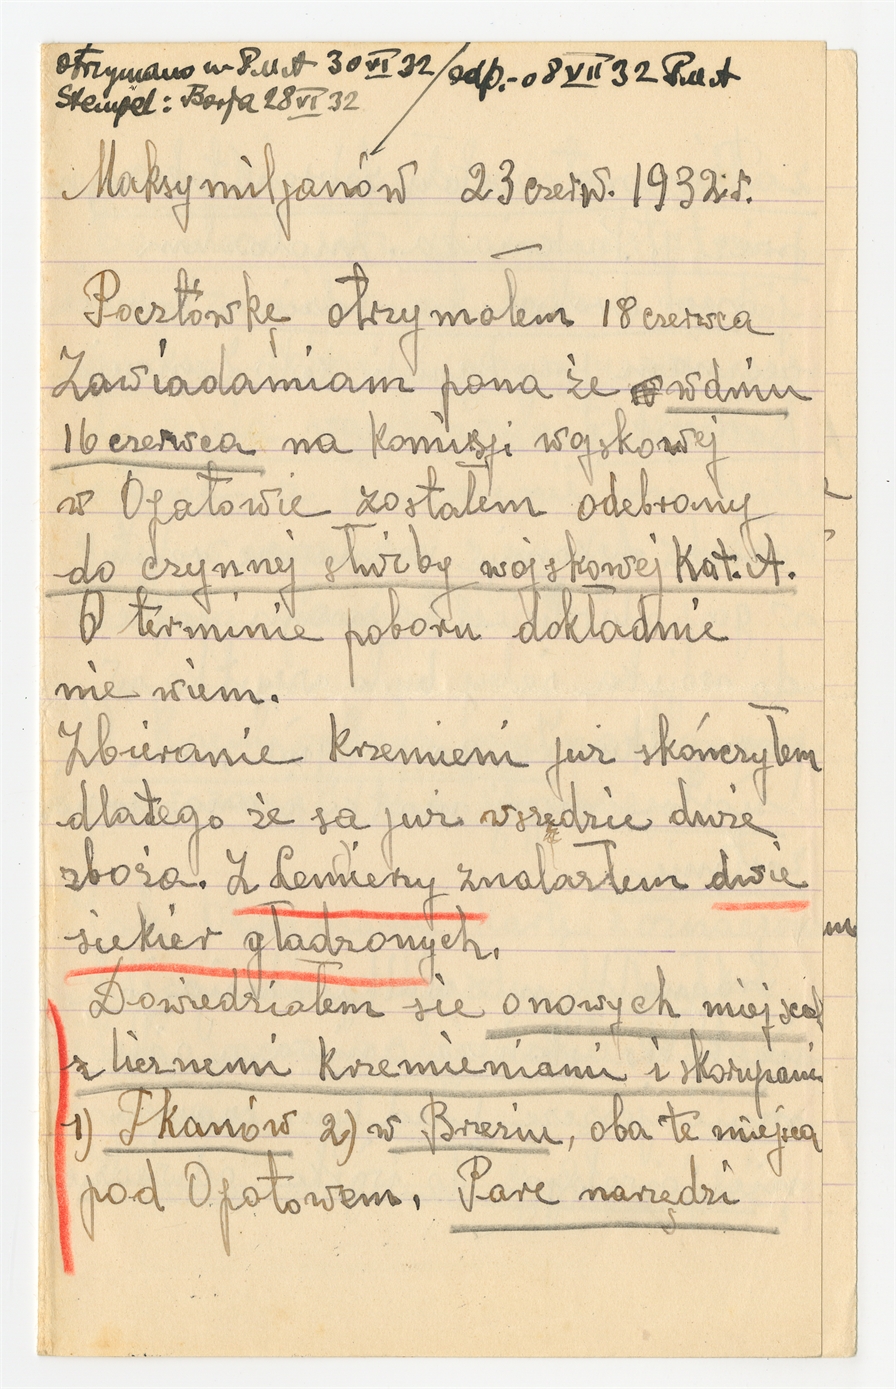 otrzymano w P.M.A 30 VI 32 / odp. - 08 VII 32 P.M.A
Stempel: Borja 28 VI 32
Maksymiljanów 23 czerw. 1932 r.
Pocztówkę otrzymałem 18 czerwca
Zawiadamiam pana że w dniu
16 czerwca na komisji wojskowej
w Opatowie zostałem odebrany
do czynnej służby wojskowej Kat. A.
O terminie poboru dokładnie
nie wiem.
Zbieranie krzemieni już skończyłem
dlatego że są już wszędzie duże
zboża. Z Lemierzy znalazłem dwie
siekier gładzonych.
Dowiedziałem sie o nowych miejscach
z licznemi krzemieniami i skorupami
1) Tkanów 2) w Brzeziu, oba te miejsca
pod Opatowem. Pare narzędzi